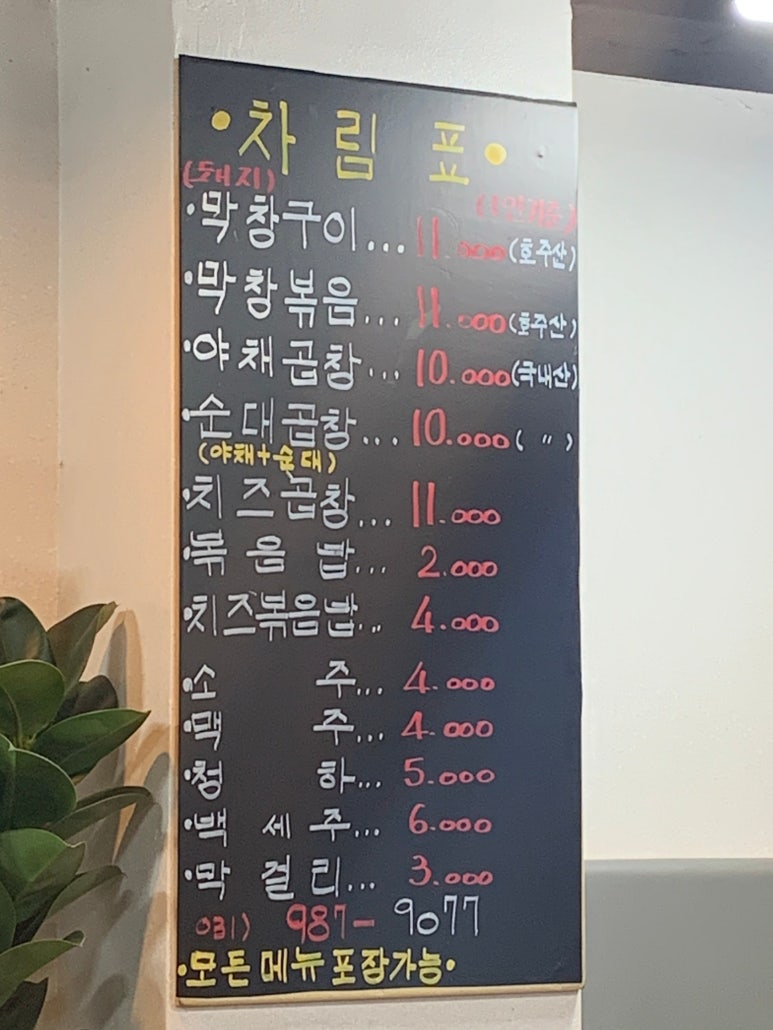 •차림표•
(돼지)
(1인기준)
•막창구이...11.000(호주산)
•막창볶음...11.000(호주산)
•야채곱창...10.000(국내산)
•순대곱창...10.000( 〃 )
(야채+순대)
•치즈곱창...11.000
•볶음밥...2.000
•치즈볶음밥...4.000
•소주...4.000
•맥주...4.000
•청하...5.000
•백세주...6.000
•막걸리...3.000
031) 987-9077
•모든메뉴포장가능•